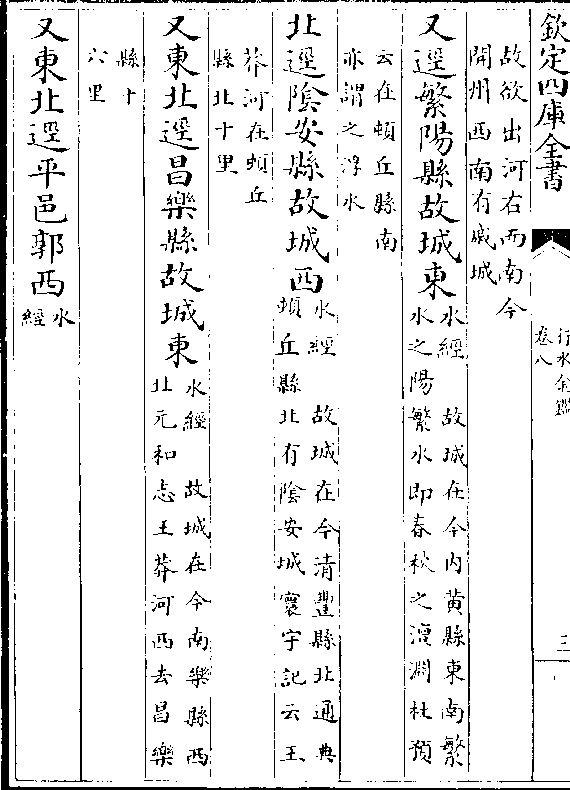 欽定四庫全書
行水金鑑
卷八
三
故欲出河右而南今
開州西南有戚城
又逕繁陽縣故城東水經 故城在今内黄縣東南繁
水之陽繁水即春秋之澶淵杜預
云在頓丘縣南
亦謂之浮水
北逕陰安縣故城西水經 故城在今清豐縣北通典
頓丘縣北有陰安城寰宇記云王
莽河在頓丘
縣北十里
又東北逕昌樂縣故城東水經 故城在今南樂縣西
北元和志王莽河西去昌樂
縣十
六里
又東北逕平邑郭西水
經